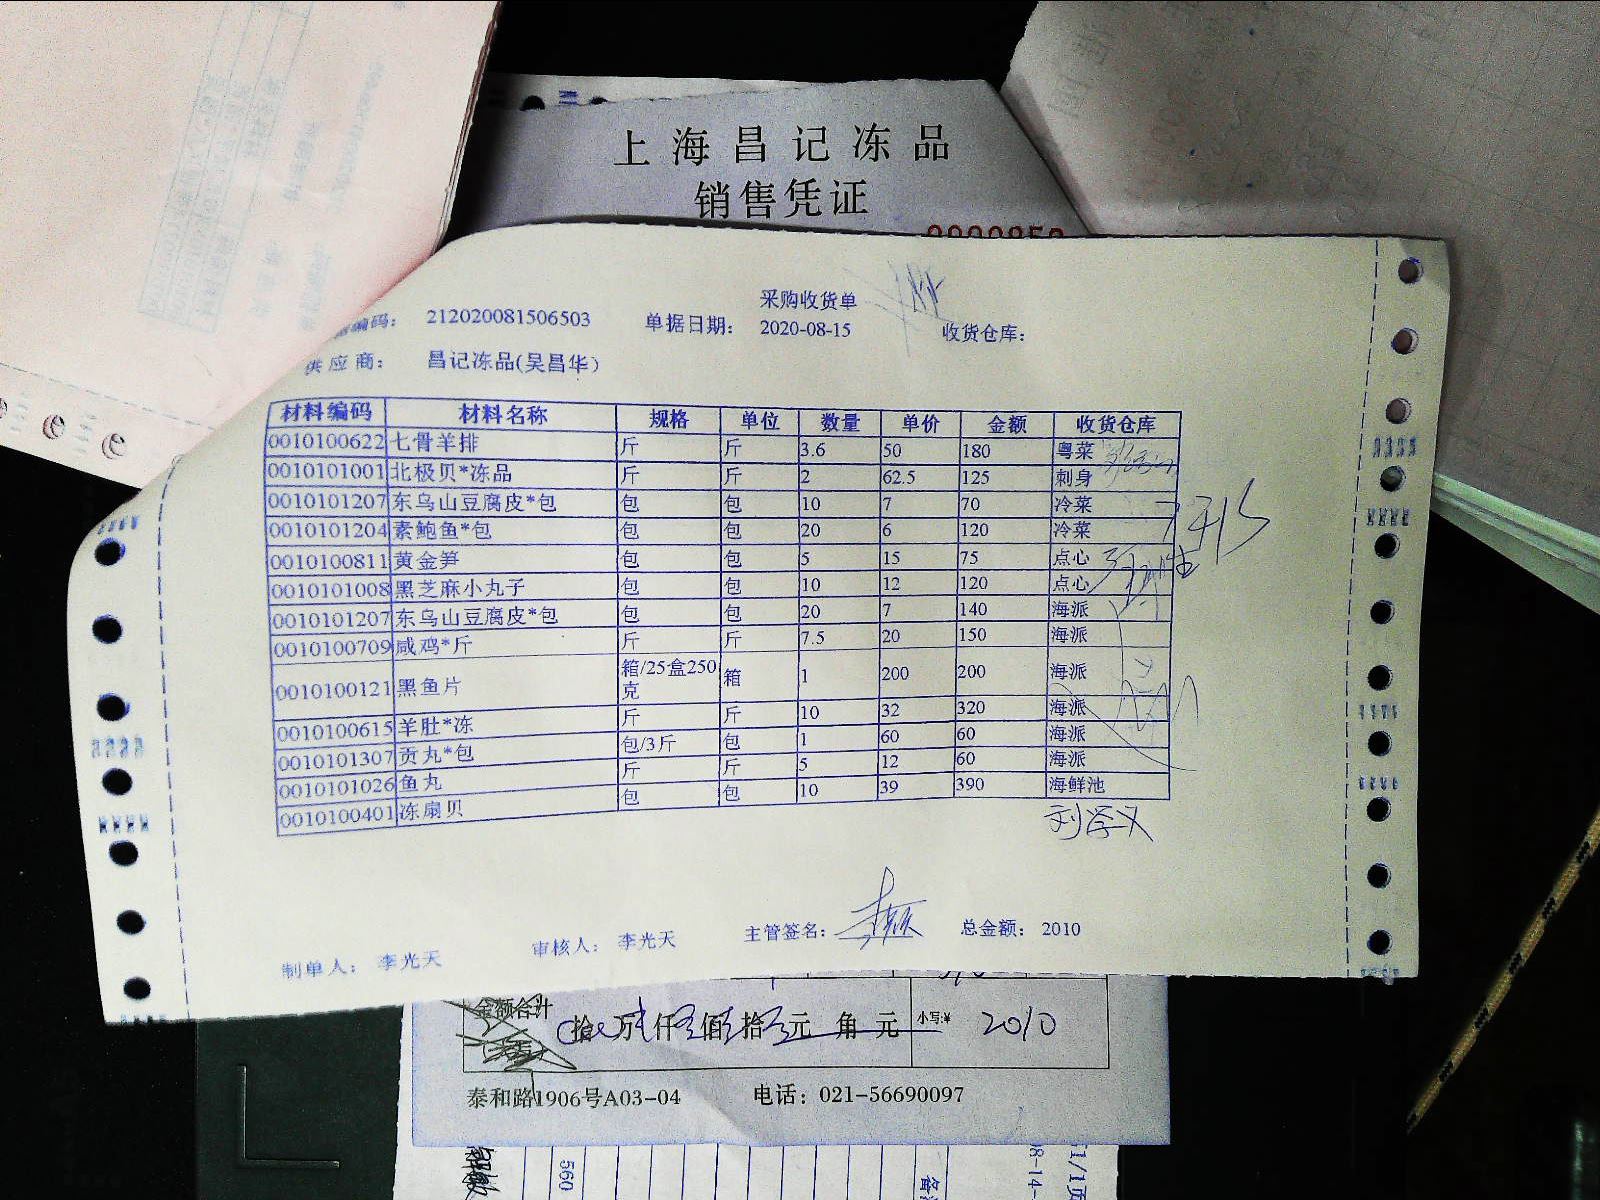 上海昌记冻品
销售凭证
采购收货单
编码： 212020081506503 单据日期： 2020-08-15 收货仓库：
供应商： 昌记冻品(吴昌华)
材料编码 材料名称 规格 单位 数量 单价 金额 收货仓库
0010100622 七骨羊排 斤 斤 3.6 50 180 粤菜
0010101001 北极贝*冻品 斤 斤 2 62.5 125 刺身
0010101207 东乌山豆腐皮*包 包 包 10 7 70 冷菜
0010101204 素鲍鱼*包 包 包 20 6 120 冷菜
0010100811 黄金笋 包 包 5 15 75 点心
0010101008 黑芝麻小丸子 包 包 10 12 120 点心
0010101207 东乌山豆腐皮*包 包 包 20 7 140 海派
0010100709 咸鸡*斤 斤 斤 7.5 20 150 海派
0010100121 黑鱼片 箱/25盒250克 箱 1 200 200 海派
0010100615 羊肚*冻 斤 斤 10 32 320 海派
0010101307 贡丸*包 包/3斤 包 1 60 60 海派
0010101026 鱼丸 斤 斤 5 12 60 海派
0010100401 冻扇贝 包 包 10 39 390 海鲜池
刘学义
制单人： 李光天 审核人： 李光天 主管签名： 总金额： 2010
金额合计 拾 万 仟 佰 拾 元 角 元 小写:¥ 2010
泰和路1906号A03-04 电话：021-56690097
560
1/1页